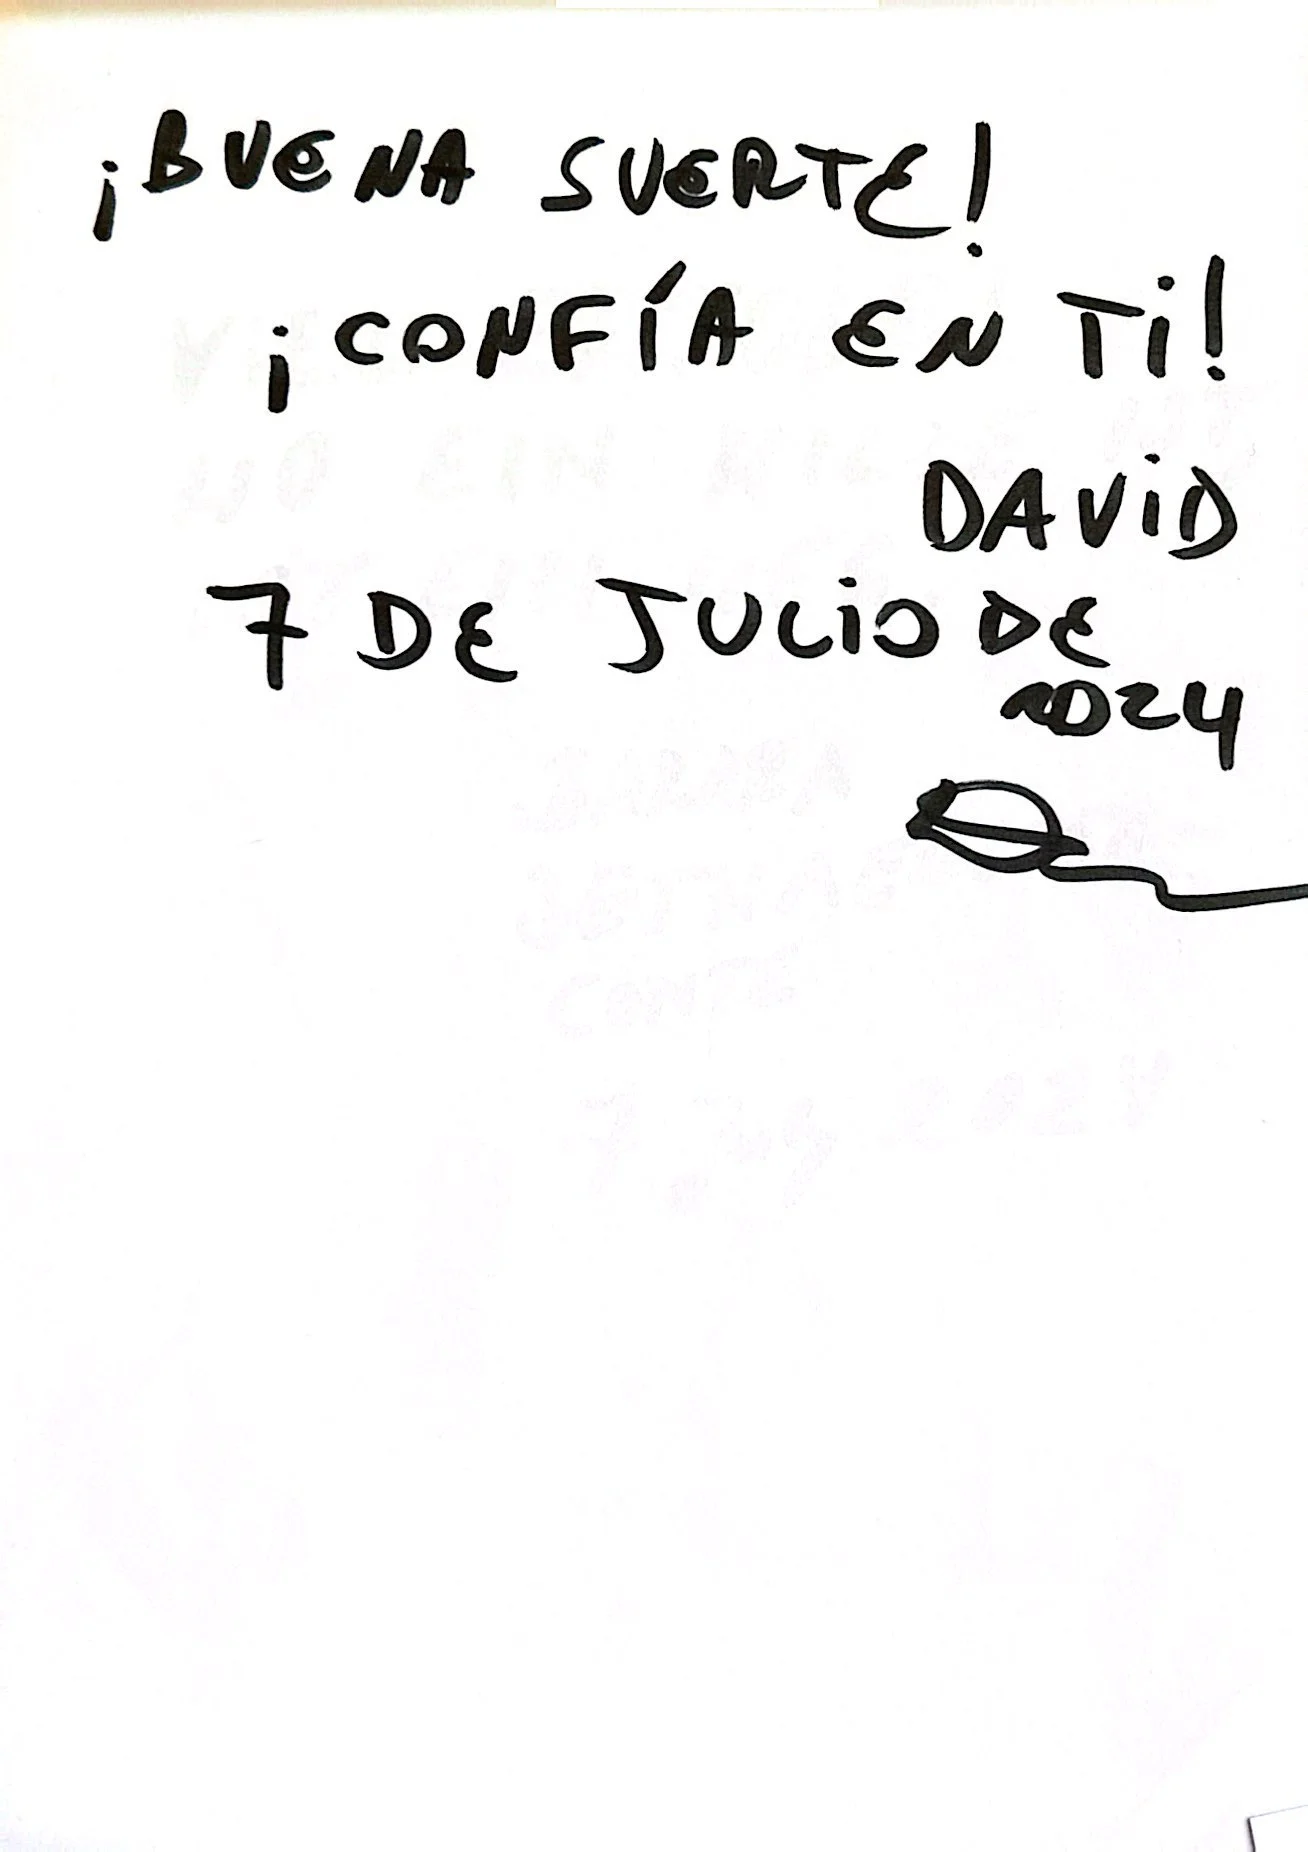 ¡BUENA SUERTE!
¡CONFÍA EN Ti!
DAViD
7 DE JULiO DE
2024